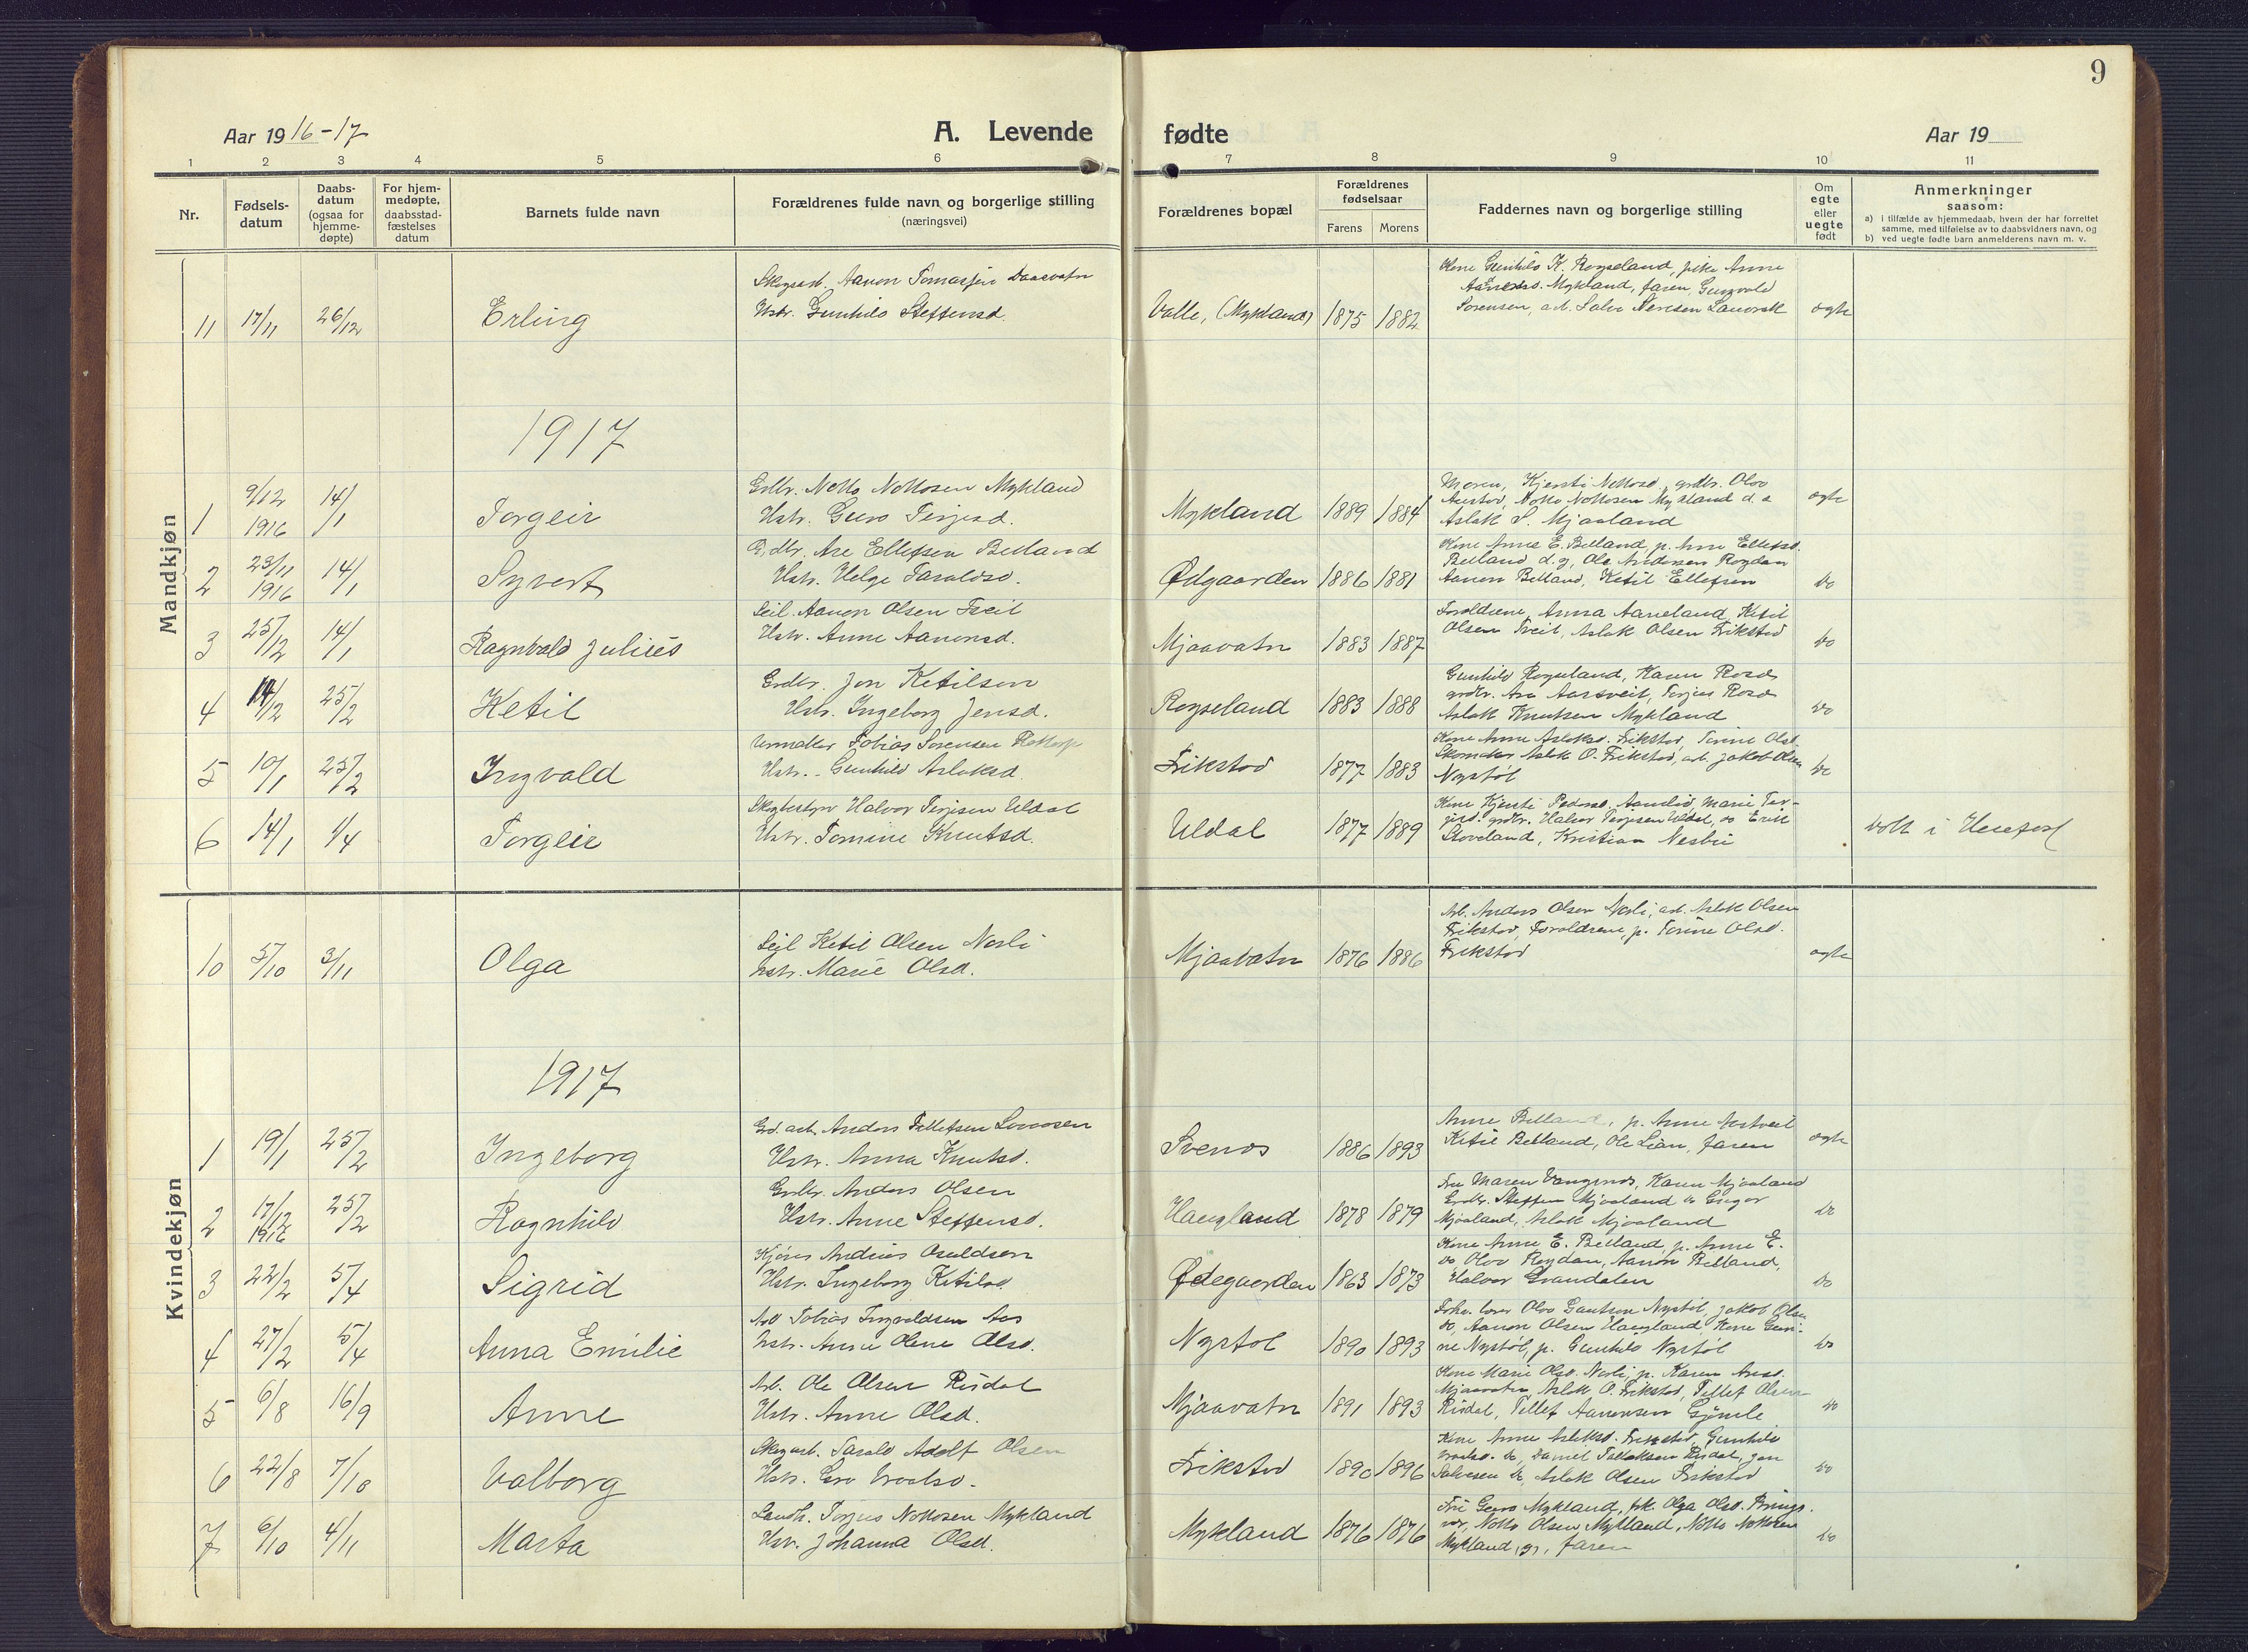 9
Aar 1916-17
A. Levende fødte
Aar 19
1 2 3 4 5 6 7 8 9 10 11
Nr.
Fødsels-datum
Daabs-datum (ogsaa for hjemme-døpte)
For hjem-medøpte, daabsstad-fæstelses datum
Barnets fulde navn
Forældrenes fulde navn og borgerlige stilling (næringsvei)
Forældrenes bopæl
Forældrenes fødselsaar
Farens Morens
Faddernes navn og borgerlige stilling
Om egte eller uegte født
Anmerkninger saasom:
a) i tilfælde av hjemmedaab, hvem der har forrettet samme, med tilføielse av to daabsvidners navn, og
b) ved uegte fødte barn anmelderens navn m. v.
Mandkjøn
11 17/11 26/12 Erling
Aanon Tomassen Daasvatn
Hstr. Gunhild Steffensd.
Valle, (Mykland) 1875 1882
Kone Gunhild K. Røyseland, pike Anne
Mykland, faren, Gunvald
Sorensen, arb. Salve
egte
1917
1 9/12 1916 14/1 Torgeir
Grdbr. Notto Nottosen Mykland
Hstr. Guro Terjesd.
Mykland 1889 1884
Moren, Kjersti Nottosd., grdbr. Olav
Notto Nottosen Mykland d. e
Aslak S. Mjaaland
egte
2 23/11 1916 14/1 Syvert
Grdbr. Are Ellefsen Belland
Hstr. Helge Taraldsd.
Ødgaarden 1886 1881
Kone Anne E. Belland, p. Anne Ellefsd.
Belland d.y, Ole Andersen
Aanon Belland, Ketil Ellefsen
do
3 25/12 14/1 Ragnvald Julius
Aanon Olsen Tveit
Hstr. Anne Aanonsd.
Mjaavatn 1883 1887
Foraldrene, Anna Aaneland, Ketil
Olsen Tveit, Aslak Olsen Frikstad
do
4 14/12 25/2 Ketil
Grdbr. Jon Ketilsen
Hstr. Ingeborg Jensd.
Røyseland 1883 1888
Gunhild Røyseland, Karen
grdbr. Are
Aslak Knutsen Mykland
do
5 10/1 25/2 Ingvald
Urmaker Tobias Sorensen
Hstr. Gunhild Aslaksd.
Frikstad 1877 1883
Kone Anne Aslaksd. Frikstad, Torine Olsd.
Aslak O. Frikstad, arb. Jakob Olsen
Nystøl
do
6 14/1 1/4 Torgeir
Halvor Terjesen Uldal
Hstr. Tomine Knutsd.
Uldal 1877 1889
Kone Kjersti Pedersd. Aamlid, Marie Ter-
jesd. grdbr. Halvor Terjesen Uldal, do
Kristian Nesbu
Døbt i Herefoss
Kvindekjøn
10 5/10 3/11 Olga
Ketil Olsen Nesli
Hstr. Marie Olsd.
Mjaavatn 1876 1886
Arb. Anders Olsen Nesli, arb. Aslak Olsen
Frikstad, Foraldrene, p. Torine Olsd.
Frikstad
egte
1917
1 19/1 25/2 Ingeborg
Anders Tellefsen
Hstr. Anna Knutsd.
Svenos 1886 1893
Anne Belland, p. Anne
Ketil Belland, Ole Lian, faren
egte
2 17/12 1916 25/2 Ragnhild
Grdbr. Anders Olsen
Hstr. Anne Steffensd.
Haugland 1878 1879
Fru Maren Vangsnes, Karen Mjaaland
Grdbr. Steffen Mjaaland do Gregar
Mjaaland, Aslak Mjaaland
do
3 22/2 5/4 Sigrid
Andreas Osuldsen
Hstr. Ingeborg Ketilsd.
Ødegaarden 1863 1873
Kone Anne E. Belland, p. Anne E.
do Olav Aanon Belland,
Halvor Grandalen
do
4 27/2 5/4 Anna Emilie
Tobias Ingvaldsen Aas
Hstr. Anne Olene Olsd.
Nystøl 1890 1893
Olav Nystøl, Jakob Olsen
do, Aanon Olsen Haugland, Kone Gun-
ne Nystøl, p. Gunhild Nystøl
do
5 6/8 16/9 Anne
Arb. Ole Olsen Risdal
Hstr. Anne Olsd.
Mjaavatn 1891 1893
Kone Marie Olsd. Nesli, p. Karen
Mjaavatn, Aslak O. Frikstad, Tellef Olsen
Risdal, Tellef Aanonsen
do
6 22/8 7/10 Valborg
Skogarb. Tarald Adolf Olsen
Hstr. Gro
Frikstad 1890 1896
Kone Anne Aslaksd. Frikstad, Gunhild
do, Daniel Risdal, Jon
Salvesen do, Aslak Olsen Frikstad
do
7 6/10 4/11 Marta
Landh. Torjus Nottosen Mykland
Hstr. Johanna Olsd.
Mykland 1876 1876
Fru Guro Mykland, frk. Olga Olsd.
Notto Olsen Mykland, Notto Nottosen
Mykland, faren
do